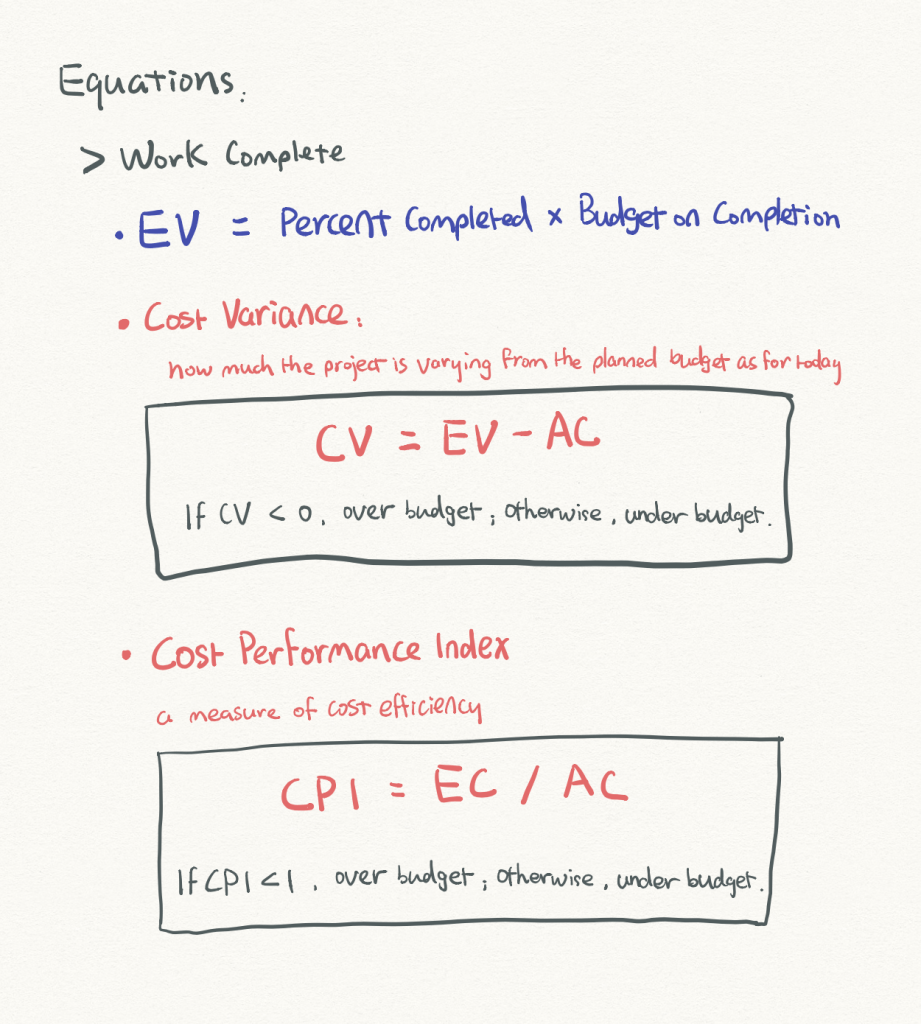 Equations.
> Work Complete
• EV = Percent Completed x Budget on Completion
• Cost Variance.
how much the project is varying from the planned budget as for today
CV = EV - AC
If CV < 0, over budget; otherwise, under budget.
• Cost Performance Index
a measure of cost efficiency
CPI = EC / AC
If CPI < 1, over budget; otherwise, under budget.